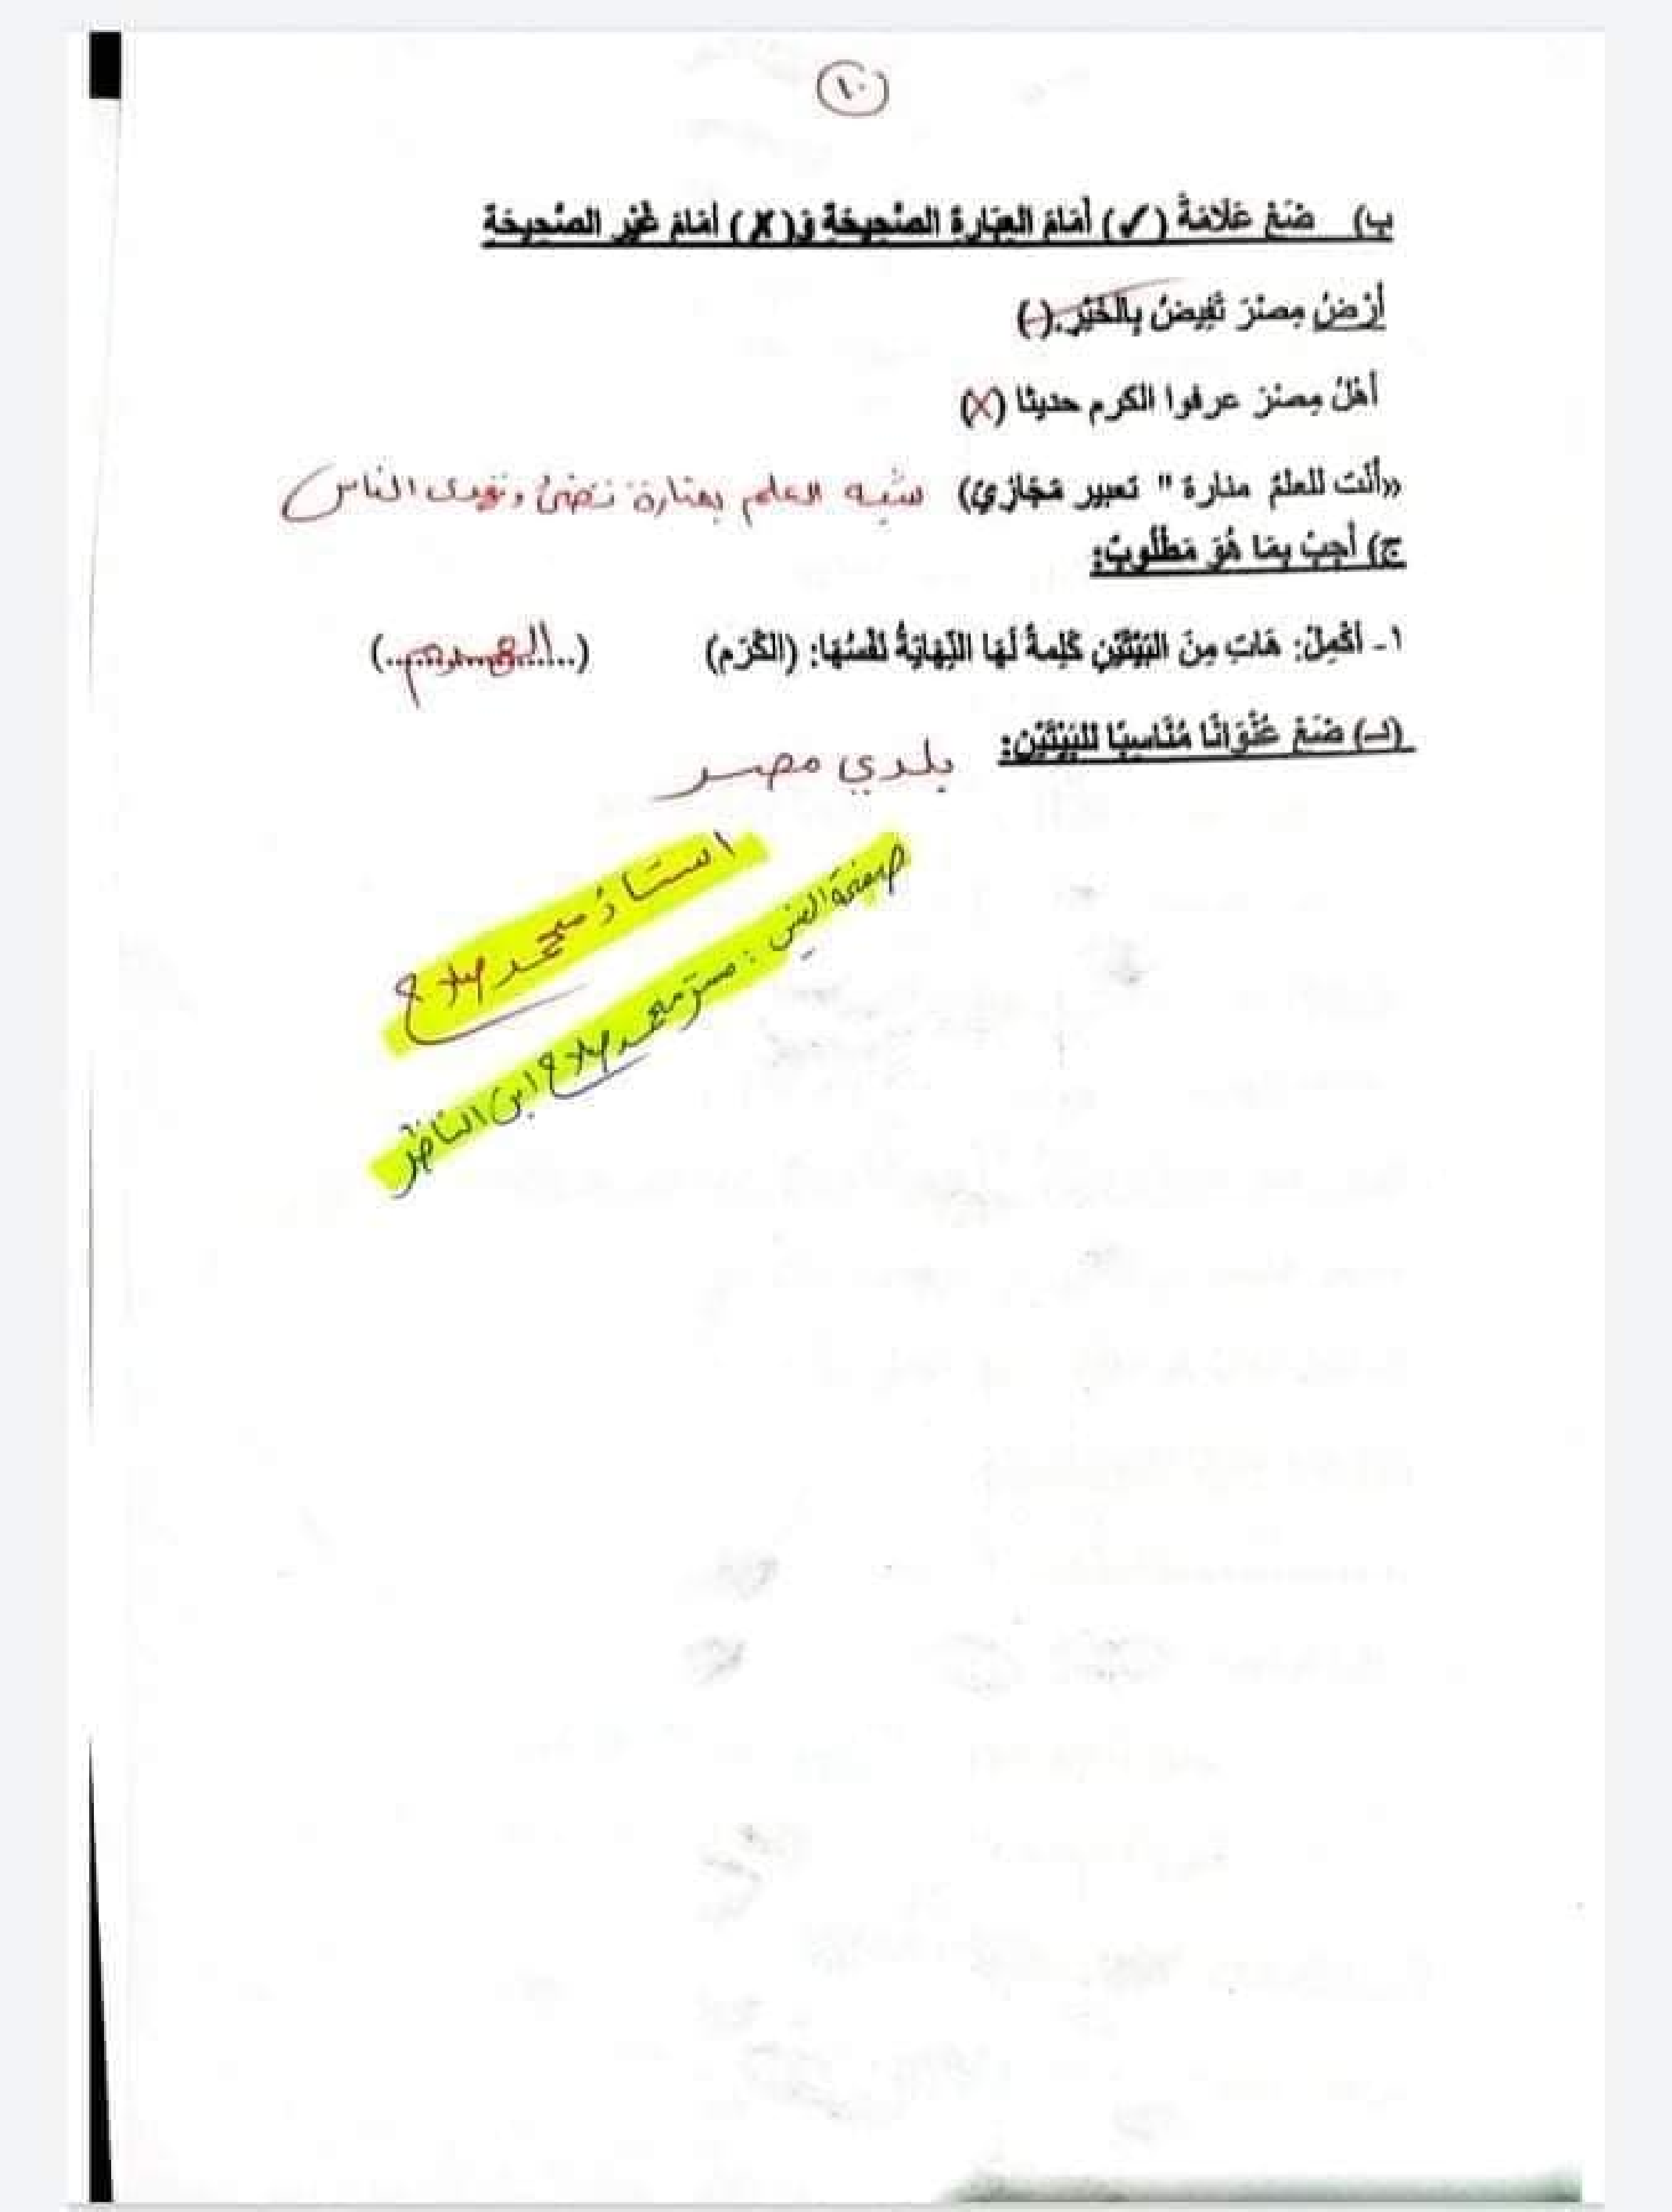 ١٠
ب) ضَعْ عَلَامَةَ (✓) أَمَامَ العِبَارةِ الصَّحِيحَةِ وَ(✗) أمَامَ غَيْرِ الصَّحِيحَةِ
أَرْضُ مِصْرَ تَفِيضُ بِالْخَيْرِ.(✓)
أهْلُ مِصْرَ عرفوا الكرم حديثا (X)
«أَنْت للعلمْ منارة " تعبير مَجَازِيّ) شبه العلم بمنارة تضئ وتهدى الناس
ج) أَجِبْ بِمَا هُوَ مَطْلُوبٌ:
١- أَكْمِلْ: هَاتِ مِنَ البَيْتَيْنِ كَلِمةً لَهَا النِّهَايَةُ نَفْسُهَا: (الكَرَم) (..الهرم..)
(د) ضَعْ عُنْوَانًا مُنَاسِبًا للبَيْتَيْنِ: بلدي مصر
استاذ محمد صلاح
صفحة الفيس : مستر محمد صلاح ابن الناظر